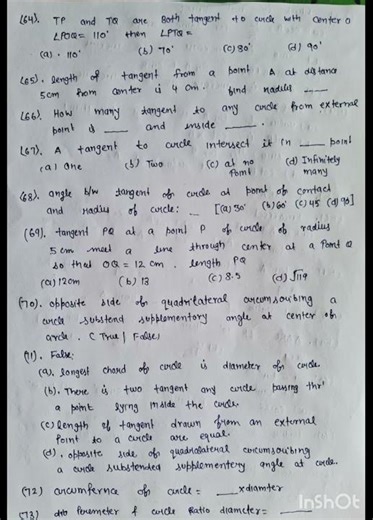 (64). TP and TQ are Both tangent to circle with center O
∠POQ = 110° then ∠PTQ =
(a). 110° (b) 70° (c) 80° (d) 90°
(65). length of tangent from a point A at distance
5cm from center is 4 cm. find radius ___
(66). How many tangent to any circle from external
point is ___ and inside ___.
(67). A tangent to circle intersect it in ___ point
(a) one (b) Two (c) at no point (d) Infinitely many
(68). angle b/w tangent of circle at point of contact
and radius of circle: _ [(a) 30° (b) 60° (c) 45 (d) 90]
(69). tangent PQ at a point P of circle of radius
5 cm meet a line through center at a Point Q
so that OQ = 12 cm. length PQ
(a) 12cm (b) 13 (c) 8.5 (d) √119
(70). opposite side of quadrilateral circumscribing a
circle substend supplementary angle at center of
circle. ( True | False)
(71). False:
(a). longest chord of circle is diameter of circle.
(b). There is two tangent any circle passing thr'
a point lying inside the circle.
(c) length of tangent drawn from an external
Point to a circle are equal.
(d). opposite side of quadrilateral circumscribing
a circle substended supplementery angle at circle.
(72) circumfernce of circle = ___ x diamter
(73) Perimeter of circle Ratio diameter = ___
InShOt